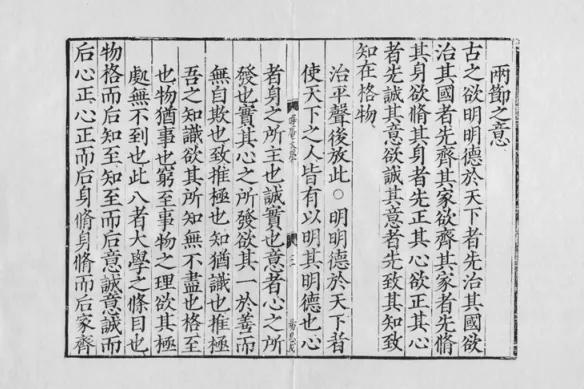 兩節之意
古之欲明明德於天下者先治其國欲
治其國者先齊其家欲齊其家者先脩
其身欲脩其身者先正其心欲正其心
者先誠其意欲誠其意者先致其知致
知在格物
治平聲後放此○明明德於天下者
使天下之人皆有以明其明德也心
三
者身之所主也誠實也意者心之所
發也實其心之所發欲其一於善而
無自欺也致推極也知猶識也推極
吾之知識欲其所知無不盡也格至
也物猶事也窮至事物之理欲其極
處無不到也此八者大學之條目也
物格而后知至知至而后意誠意誠而
后心正心正而后身脩身脩而后家齊